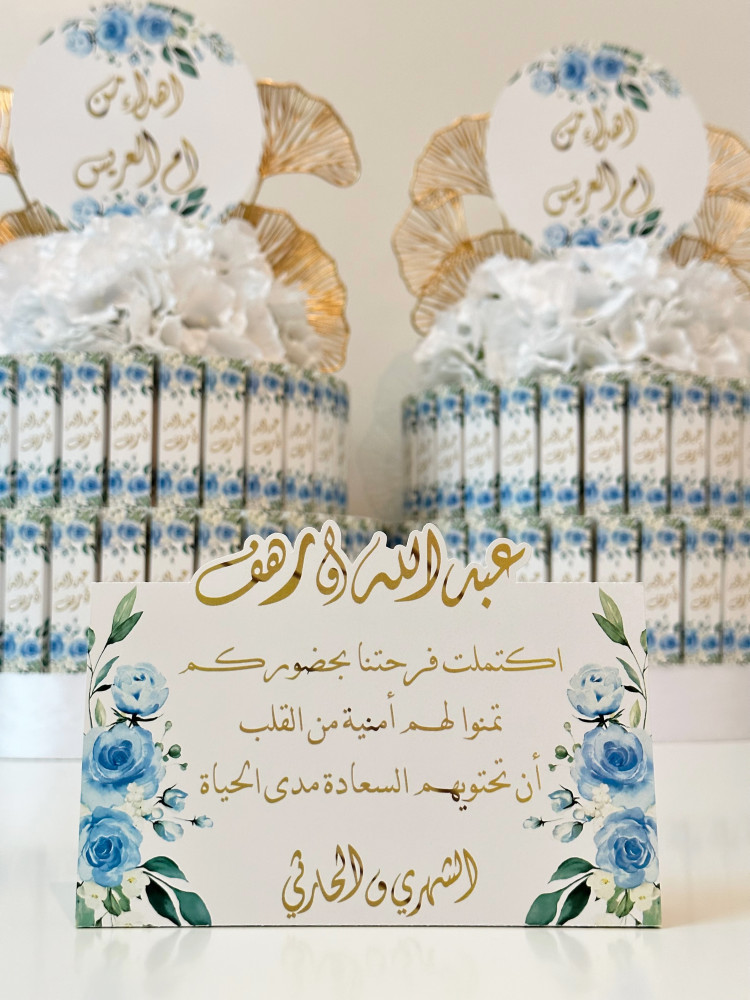 اهداء من
ام العريس
اهداء من
ام العريس
عبدالله و رهف
اكتملت فرحتنا بحضوركم
تمنوا لهم أمنية من القلب
أن تحتويهم السعادة مدى الحياة
الشهري و الحارثي